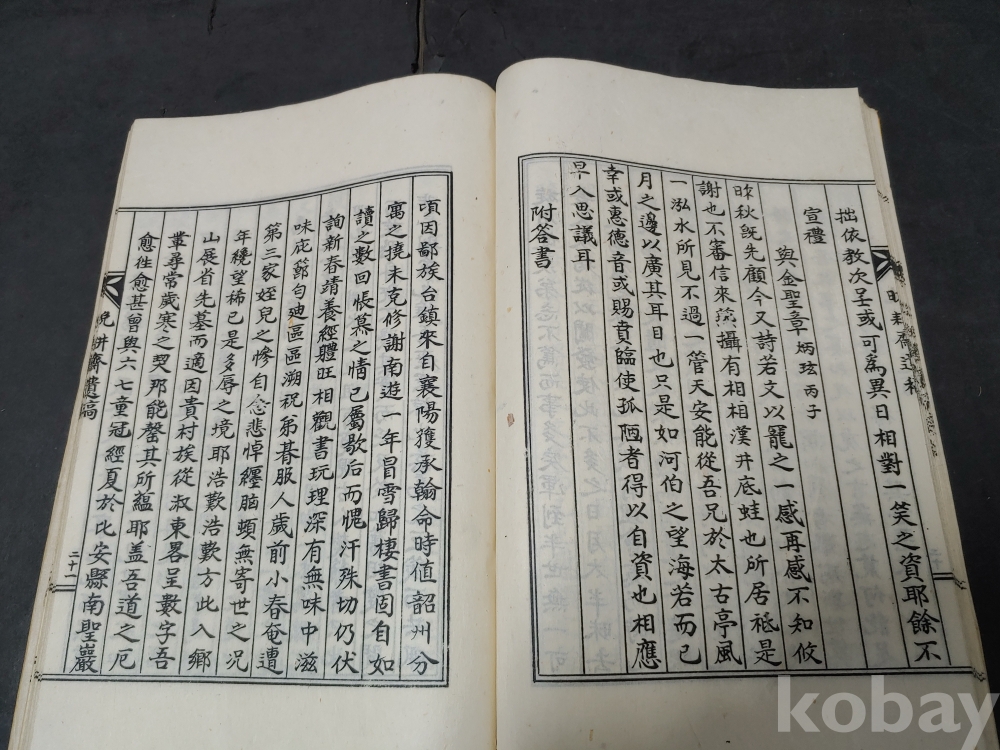 拙依教次呈或可爲異日相對一笑之資耶餘不
宣禮
與金聖章炳玹丙子
昨秋旣先顧今又詩若文以寵之一感再感不知攸
謝也不審信來攝有相相漢井底蛙也所居祗是
一泓水所見不過一管天安能從吾兄於太古亭風
月之邊以廣其耳目也只是如河伯之望海若而已
幸或惠德音或賜賁臨使孤陋者得以自資也相應
早入思議耳
附答書
頃因鄙族台鎮來自襄陽獲承翰命時値韶州分
寓之撓未克修謝南遊一年冒雪歸棲書固自如
讀之數回悵慕之情已屬歇后而愧汗殊切仍伏
詢新春靖養經體旺相觀書玩理深有無味中滋
味庇節勻迪區區溯祝弟朞服人歲前小春奄遭
第三家姪兒之慘自念悲悼纏腦頓無寄世之况
年穐望稀已是多辱之境耶浩歎浩歎方此入鄉
山展省先墓而適因貴村族從淑東畧呈數字吾
輩尋常歲寒之契那能罄其所蘊耶盖吾道之厄
愈徃愈甚曾與六七童冠經夏於比安縣南聖巖
晩耕齋遺稿
二十一
kobay